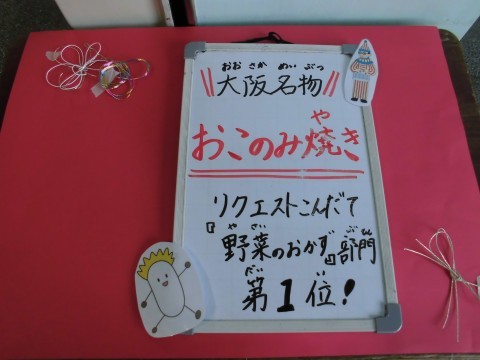 おおさかめいぶつ
\\大阪名物//
や
おこのみ焼き
リクエストこんだて
やさい ぶもん
『野菜のおかず』部門
だい い
第1位!